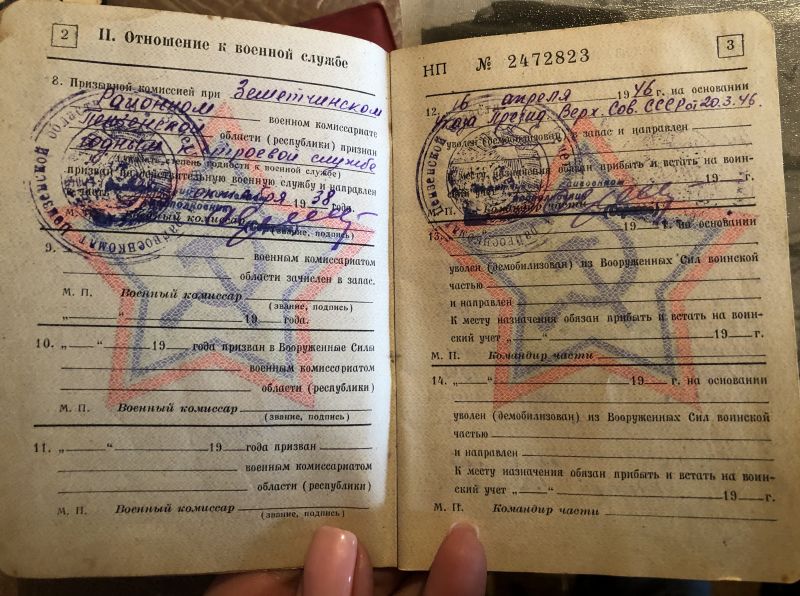 2
II. Отношение к военной службе
8. Призывной комиссией при Земетчинском
Районном военном комиссариате
Пензенской области (республики) признан
годным к строевой службе
(указать степень годности к военной службе)
призван на действительную военную службу и направлен
в часть октября 1938 года.
М. П. Военный комиссар
(звание, подпись)
9. военным комиссариатом
области зачислен в запас.
М. П. Военный комиссар
(звание, подпись)
„ “ 19 года.
10. „ “ 19 года призван в Вооруженные Силы
военным комиссариатом
области (республики)
М. П. Военный комиссар
(звание, подпись)
11. „ “ 19 года призван
военным комиссариатом
области (республики)
М. П. Военный комиссар
(звание, подпись)
НП № 2472823
3
12. 16 апреля 1946 г. на основании
Указа Презид. Верх. Сов. СССР от 20.3.46.
уволен (демобилизован) в запас и направлен
К месту назначения обязан прибыть и встать на воин-
19 г.
М. П. Командир части
13. 19 г. на основании
уволен (демобилизован) из Вооруженных Сил воинской
частью
и направлен
К месту назначения обязан прибыть и встать на воин-
ский учет „ “ 19 г.
М. П. Командир части
14. „ “ 19 г. на основании
уволен (демобилизован) из Вооруженных Сил воинской
частью
и направлен
К месту назначения обязан прибыть и встать на воин-
ский учет „ “ 19 г.
М. П. Командир части